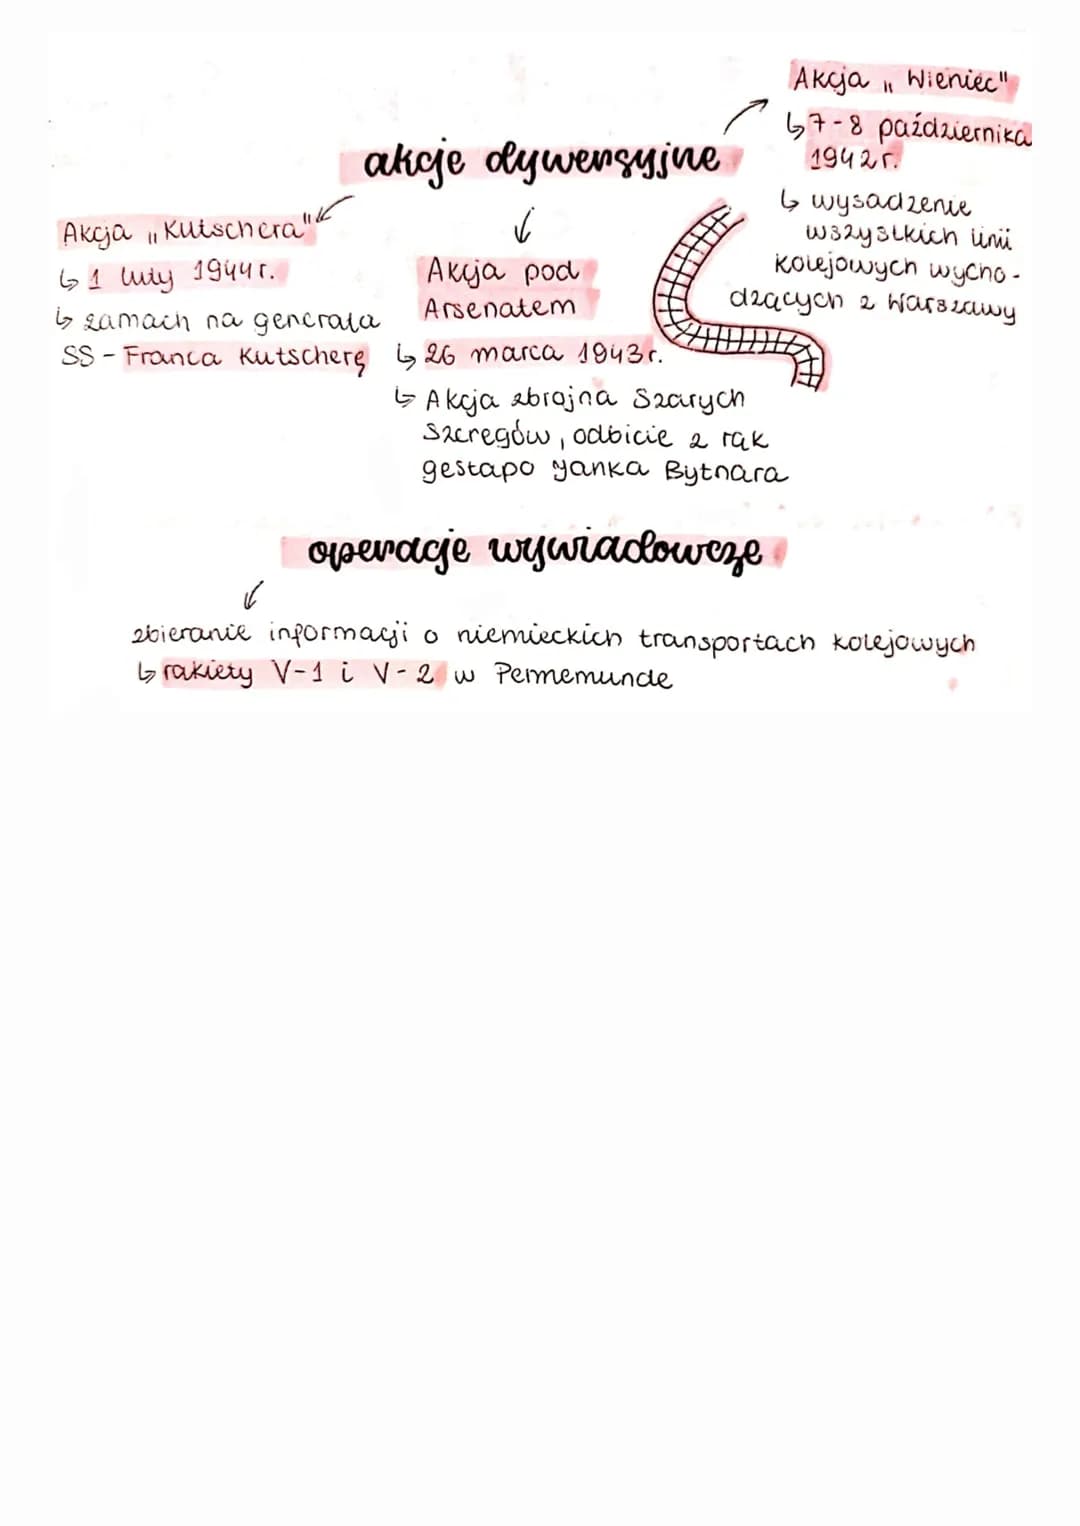 akcje dywersyjne
Akcja „Wieniec"
↳ 7-8 października
1942r.
↳ wysadzenie
wszystkich linii
kolejowych wycho-
dzących z Warszawy
Akcja „Kutschera"
↳ 1 luty 1944r.
↳ zamach na generała
SS - Franca Kutscherę
Akcja pod
Arsenałem
↳ 26 marca 1943r.
↳ Akcja zbrojna Szarych
Szeregów, odbicie z rąk
gestapo Janka Bytnara
operacje wywiadowcze
zbieranie informacji o niemieckich transportach kolejowych
↳ rakiety V-1 i V-2 w Pennemunde